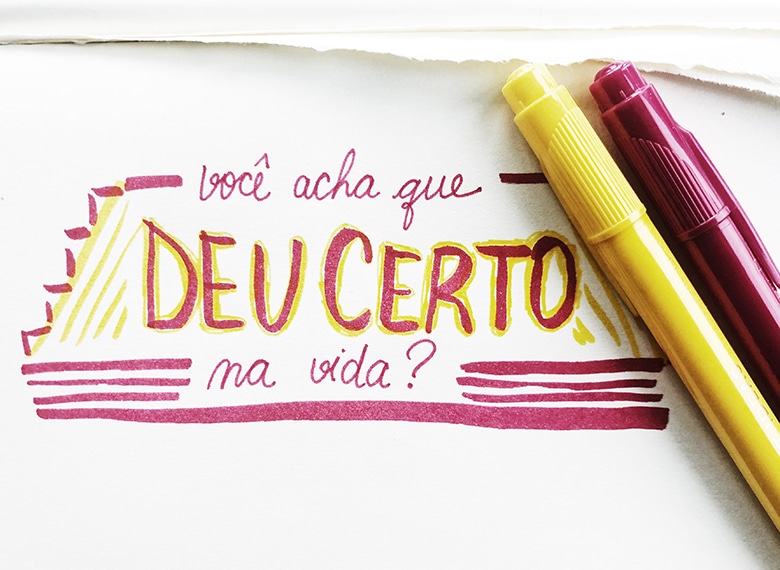 você acha que
DEU CERTO
na vida?